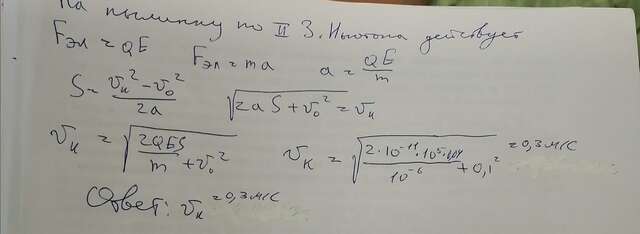 На пылинку по II З. Ньютона действует
Fэл = QE Fэл = ma a = QE/m
S = (υк² - υ₀²)/2a √(2aS + υ₀²) = υк
υк = √(2QES/m + υ₀²) υк = √((2·10⁻¹¹·10⁵·)/10⁻⁶ + 0,1²) = 0,3 м/с
Ответ: υк = 0,3 м/с